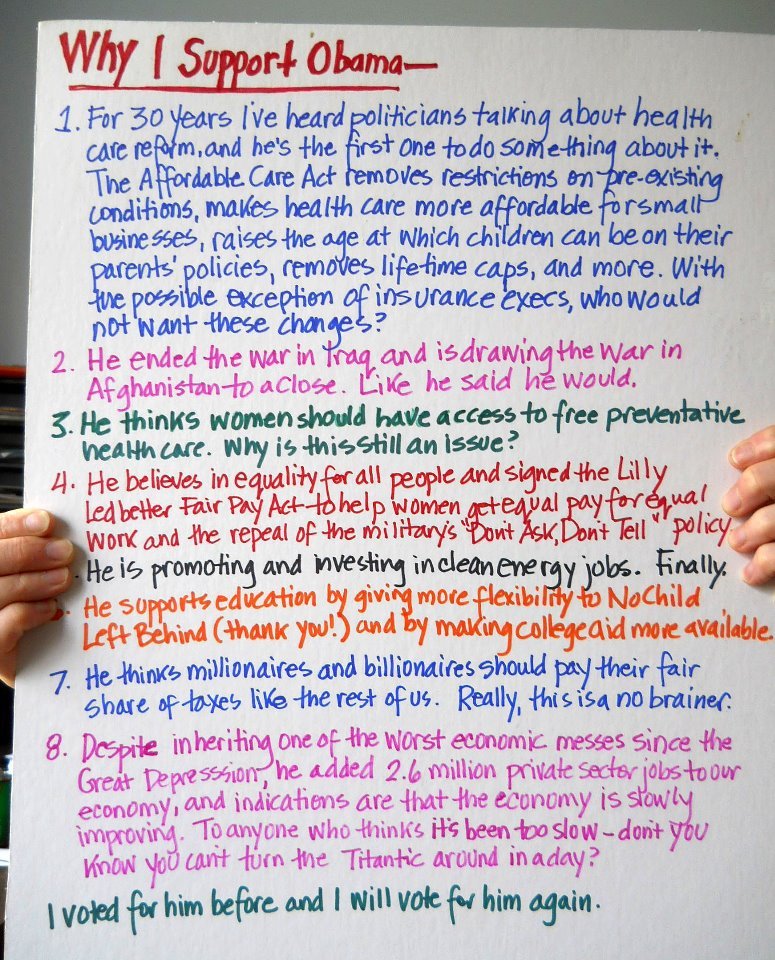 Why I Support Obama—
1. For 30 years I've heard politicians talking about health
care reform, and he's the first one to do something about it.
The Affordable Care Act removes restrictions on pre-existing
conditions, makes health care more affordable for small
businesses, raises the age at which children can be on their
parents' policies, removes lifetime caps, and more. With
the possible exception of insurance execs, who would
not want these changes?
2. He ended the war in Iraq and is drawing the war in
Afghanistan to a close. Like he said he would.
3. He thinks women should have access to free preventative
health care. Why is this still an issue?
4. He believes in equality for all people and signed the Lilly
Ledbetter Fair Pay Act to help women get equal pay for equal
work and the repeal of the military's "Don't Ask, Don't Tell" policy
. He is promoting and investing in clean energy jobs. Finally.
He supports education by giving more flexibility to No Child
Left Behind (thank you!) and by making college aid more available.
7. He thinks millionaires and billionaires should pay their fair
share of taxes like the rest of us. Really, this is a no brainer.
8. Despite inheriting one of the worst economic messes since the
Great Depresssion, he added 2.6 million private sector jobs to our
economy, and indications are that the economy is slowly
improving. To anyone who thinks it's been too slow – don't you
know you can't turn the Titantic around in a day?
I voted for him before and I will vote for him again.